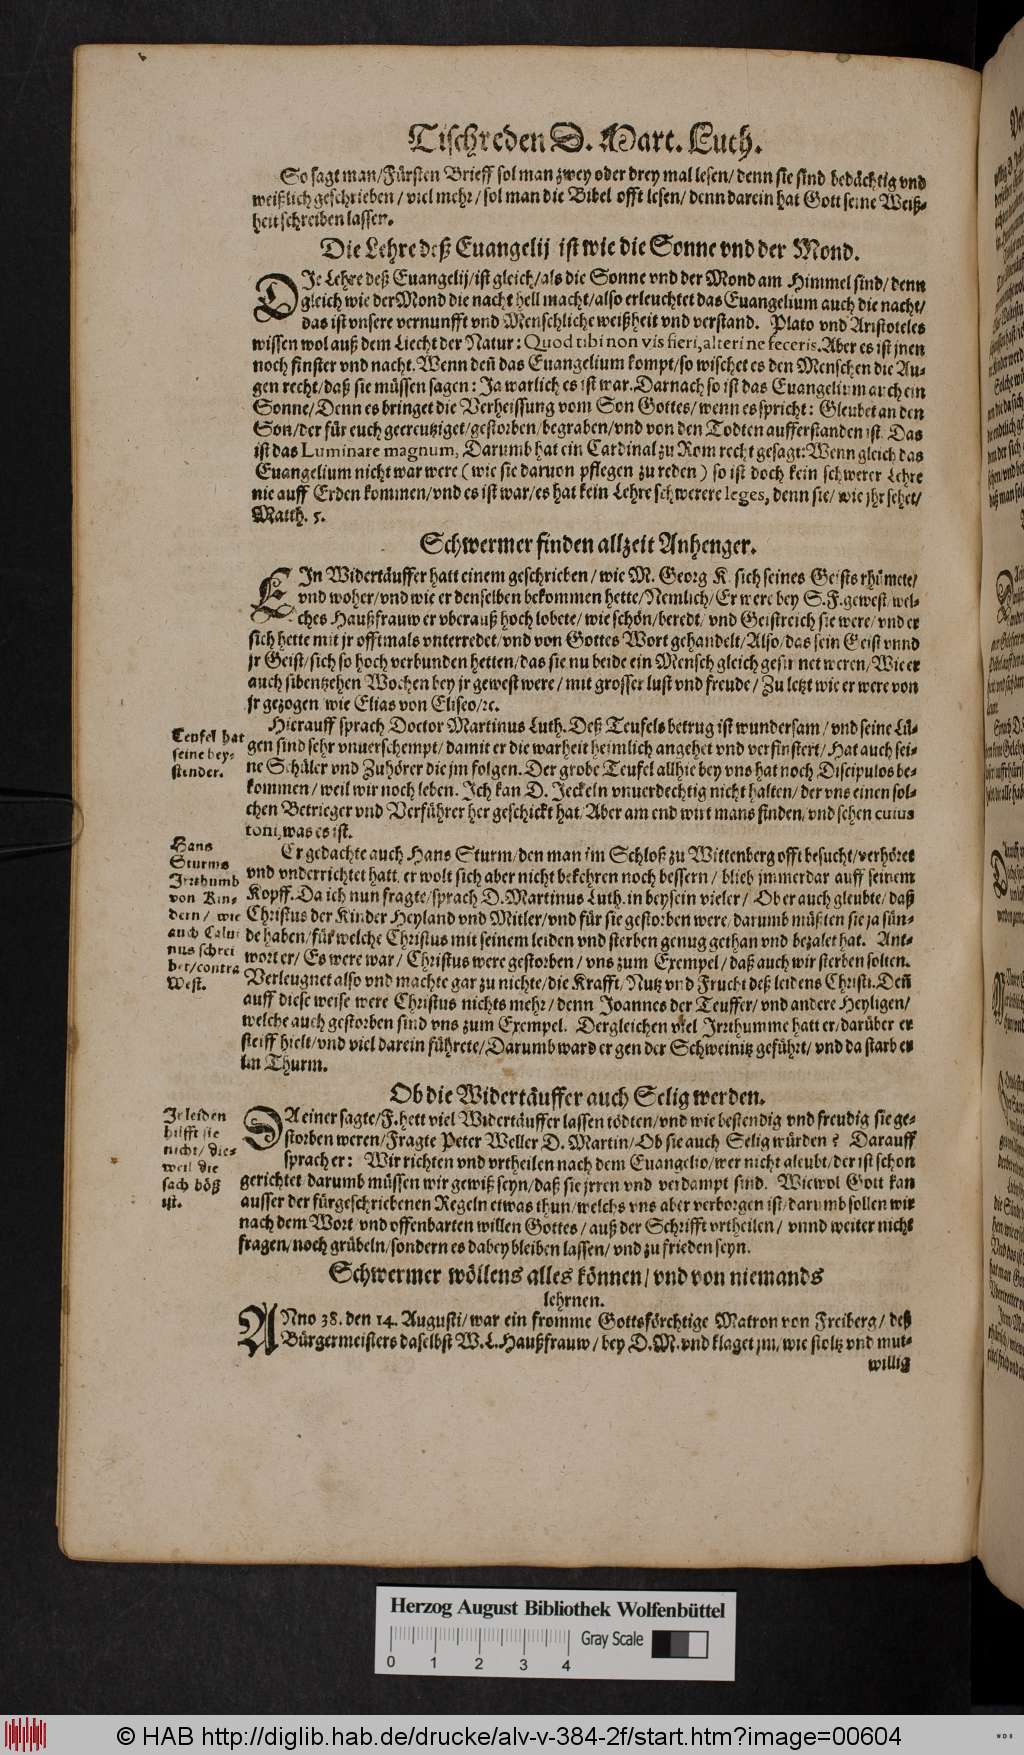 Tischreden D. Mart. Luth.
So sagt man/Fürsten Brieff sol man zwey oder drey mal lesen/denn sie sind bedächtig vnd
weißlich geschrieben/viel mehr/sol man die Bibel offt lesen/denn darein hat Gott seine Weiß-
heit schreiben lassen.
Die Lehre deß Euangelij ist wie die Sonne vnd der Mond.
DIe Lehre deß Euangelij/ist gleich/als die Sonne vnd der Mond am Himmel sind/denn
gleich wie der Mond die nacht hell macht/also erleuchtet das Euangelium auch die nacht/
das ist vnsere vernunfft vnd Menschliche weißheit vnd verstand. Plato vnd Aristoteles
wissen wol auß dem Liecht der Natur: Quod tibi non vis fieri, alteri ne feceris. Aber es ist jnen
noch finster vnd nacht. Wenn deñ das Euangelium kompt/so wischet es den Menschen die Au-
gen recht/daß sie müssen sagen: Ja warlich es ist war. Darnach so ist das Euangelium auch ein
Sonne/Denn es bringet die Verheissung vom Son Gottes/wenn es spricht: Gleubet an den
Son/der für euch gecreutziget/gestorben/begraben/vnd von den Todten aufferstanden ist. Das
ist das Luminare magnum, Darumb hat ein Cardinal zu Rom recht gesagt: Wenn gleich das
Euangelium nicht war were (wie sie daruon pflegen zu reden) so ist doch kein schwerer Lehre
nie auff Erden kommen/vnd es ist war/es hat kein Lehre schwerere leges, denn sie/wie jhr sehet/
Matth. 5.
Schwermer finden allzeit Anhenger.
EIn Widertäuffer hatt einem geschrieben/wie M. Georg K. sich seines Geists rhümete/
vnd woher/vnd wie er denselben bekommen hette/Nemlich/Er were bey S. F. gewest/wel-
ches Haußfrauw er vberauß hoch lobete/wie schön/beredt/vnd Geistreich sie were/vnd er
sich hette mit jr offtmals vnterredet/vnd von Gottes Wort gehandelt/Also/das sein Geist vnnd
jr Geist/sich so hoch verbunden hetten/das sie nu beide ein Mensch gleich gesinnet weren/Wie er
auch sibentzehen Wochen bey jr gewest were/mit grosser lust vnd freude/Zu letzt wie er were von
jr gezogen/wie Elias von Eliseo/ꝛc.
Hierauff sprach Doctor Martinus Luth. Deß Teufels betrug ist wundersam/vnd seine Lü-
gen sind sehr vnuerschempt/damit er die warheit heimlich angehet vnd verfinstert/Hat auch sei-
ne Schüler vnd Zuhörer die jm folgen. Der grobe Teufel allhie bey vns hat noch Discipulos be-
kommen/weil wir noch leben. Ich kan D. Jeckeln vnuerdechtig nicht halten/der vns einen sol-
chen Betrieger vnd Verführer her geschickt hat/Aber am end wirt mans finden/vnd sehen cuius
toni, was es ist.
Teufel hat
seine bey-
stender.
Er gedachte auch Hans Sturm/den man im Schloß zu Wittenberg offt besucht/verhöret
vnd vnderrichtet hatt/er wolt sich aber nicht bekehren noch bessern/blieb jmmerdar auff seinem
Kopff. Da ich nun fragte/sprach D. Martinus Luth. in beysein vieler/Ob er auch gleubte/daß
Christus der Kinder Heyland vnd Mitler/vnd für sie gestorben were/darumb müßten sie ja sün-
de haben/für welche Christus mit seinem leiden vnd sterben genug gethan vnd bezalet hat. Ant-
wort er/Es were war/Christus were gestorben/vns zum Exempel/daß auch wir sterben solten.
Verleugnet also vnd machte gar zu nichte/die Krafft/Nutz vnd Frucht deß leidens Christi. Deñ
auff diese weise were Christus nichts mehr/denn Joannes der Teuffer/vnd andere Heyligen/
welche auch gestorben sind vns zum Exempel. Dergleichen viel Irrthumme hatt er/darüber er
steiff hielt/vnd viel darein führete/Darumb ward er gen der Schweinitz geführt/vnd da starb er
im Thurm.
Hans
Sturms
Irrthumb
von Kin-
dern/wie
auch Calui
nus schrei
bet/contra
West.
Ob die Widertäuffer auch Selig werden.
DA einer sagte/F. hett viel Widertäuffer lassen tödten/vnd wie bestendig vnd freudig sie ge-
storben weren/Fragte Peter Weller D. Martin/Ob sie auch Selig würden? Darauff
sprach er: Wir richten vnd vrtheilen nach dem Euangelio/wer nicht gleubt/der ist schon
gerichtet/darumb müssen wir gewiß seyn/daß sie jrren vnd verdampt sind. Wiewol Gott kan
ausser der fürgeschriebenen Regeln etwas thun/welchs vns aber verborgen ist/darumb sollen wir
nach dem Wort vnd offenbarten willen Gottes/auß der Schrifft vrtheilen/vnnd weiter nicht
fragen/noch grübeln/sondern es dabey bleiben lassen/vnd zu frieden seyn.
Ir leiden
hilfft sie
nicht/die-
weil die
sach böß
ist.
Schwermer wöllens alles können/vnd von niemands
lehrnen.
ANno 38. den 14. Augusti/war ein fromme Gottsförchtige Matron von Freiberg/deß
Bürgermeisters daselbst W. L. Haußfrauw/bey D. M. vnd klaget jm/wie stoltz vnd mut-
willig
Herzog August Bibliothek Wolfenbüttel
Gray Scale
0 1 2 3 4
© HAB http://diglib.hab.de/drucke/alv-v-384-2f/start.htm?image=00604